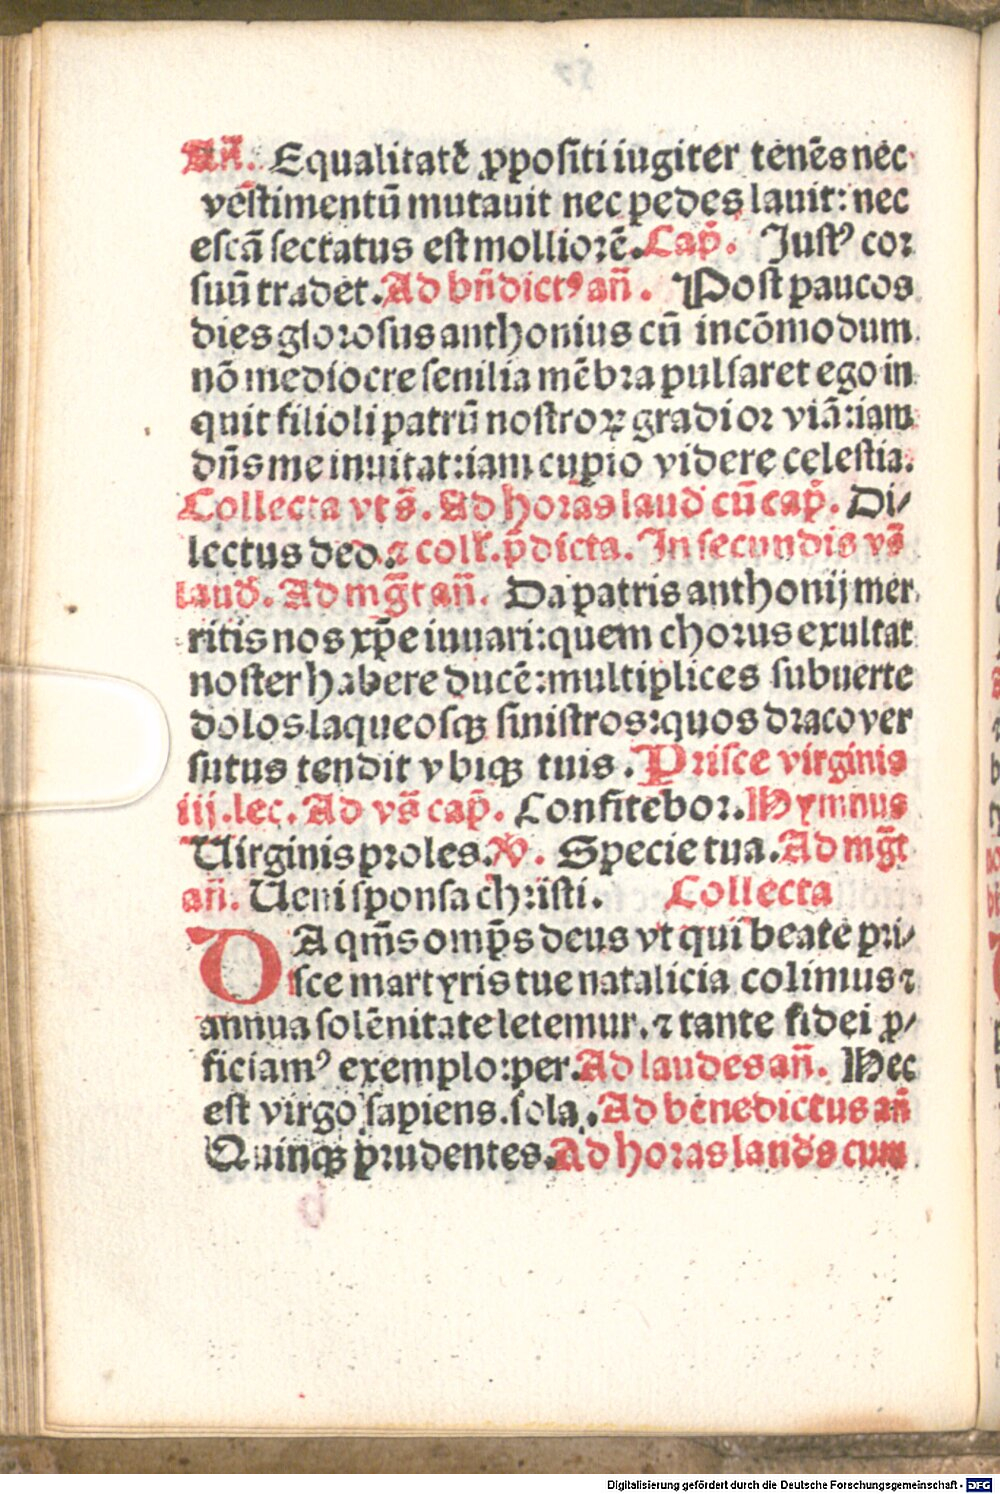 Añ. Equalitatē ꝓpositi iugiter tenēs nec
vestimentū mutauit nec pedes lauit: nec
escā sectatus est molliorē. Cap̄. Justꝰ cor
suū tradet. Ad bn̄dictꝰ añ. Post paucos
dies glorosus anthonius cū incōmodum
nō mediocre senilia mēbra pulsaret ego in
quit filioli patrū nostroꝝ gradior viā: iam
dn̄s me inuitat: iam cupio videre celestia.
Collecta vt s̄. Ad horas laud cū cap̄. Di/
lectus deo. ⁊ coll. p̄dicta. In secundis vs̄
laud. Ad mḡt añ. Da patris anthonij mer
ritis nos xp̄e iuuari: quem chorus exultat
noster habere ducē: multiplices subuerte
dolos laqueosqꝫ sinistros: quos draco ver
sutus tendit vbiqꝫ tuis. Prisce virginis
iij. lec. Ad vs̄ cap̄. Confitebor. Hymnus
Uirginis proles. ℣. Specie tua. Ad mḡt
añ. Ueni sponsa christi. Collecta
DA qm̄s omp̄s deus vt qui beate pri/
sce martyris tue natalicia colimus ⁊
annua solēnitate letemur. ⁊ tante fidei ꝓ/
ficiamꝰ exemplo: per. Ad laudes añ. Hec
est virgo sapiens. sola. Ad benedictus añ
Quinqꝫ prudentes. Ad horas lauds cum
Digitalisierung gefördert durch die Deutsche Forschungsgemeinschaft - DFG